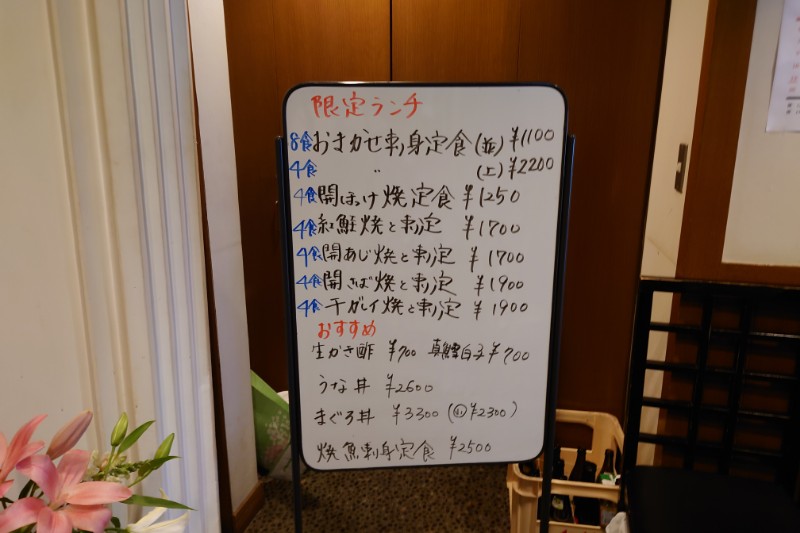 限定ランチ
8食 おまかせ刺身定食 (並) ¥1100
4食 〃 (上) ¥2200
4食 開ほっけ焼定食 ¥1250
4食 紅鮭焼と刺定 ¥1700
4食 開あじ焼と刺定 ¥1700
4食 開さば焼と刺定 ¥1900
4食 干ガレイ焼と刺定 ¥1900
おすすめ
生かき酢 ¥700 真鱈白子 ¥700
うな丼 ¥2600
まぐろ丼 ¥3300 (小 ¥2300)
焼魚刺身定食 ¥2500